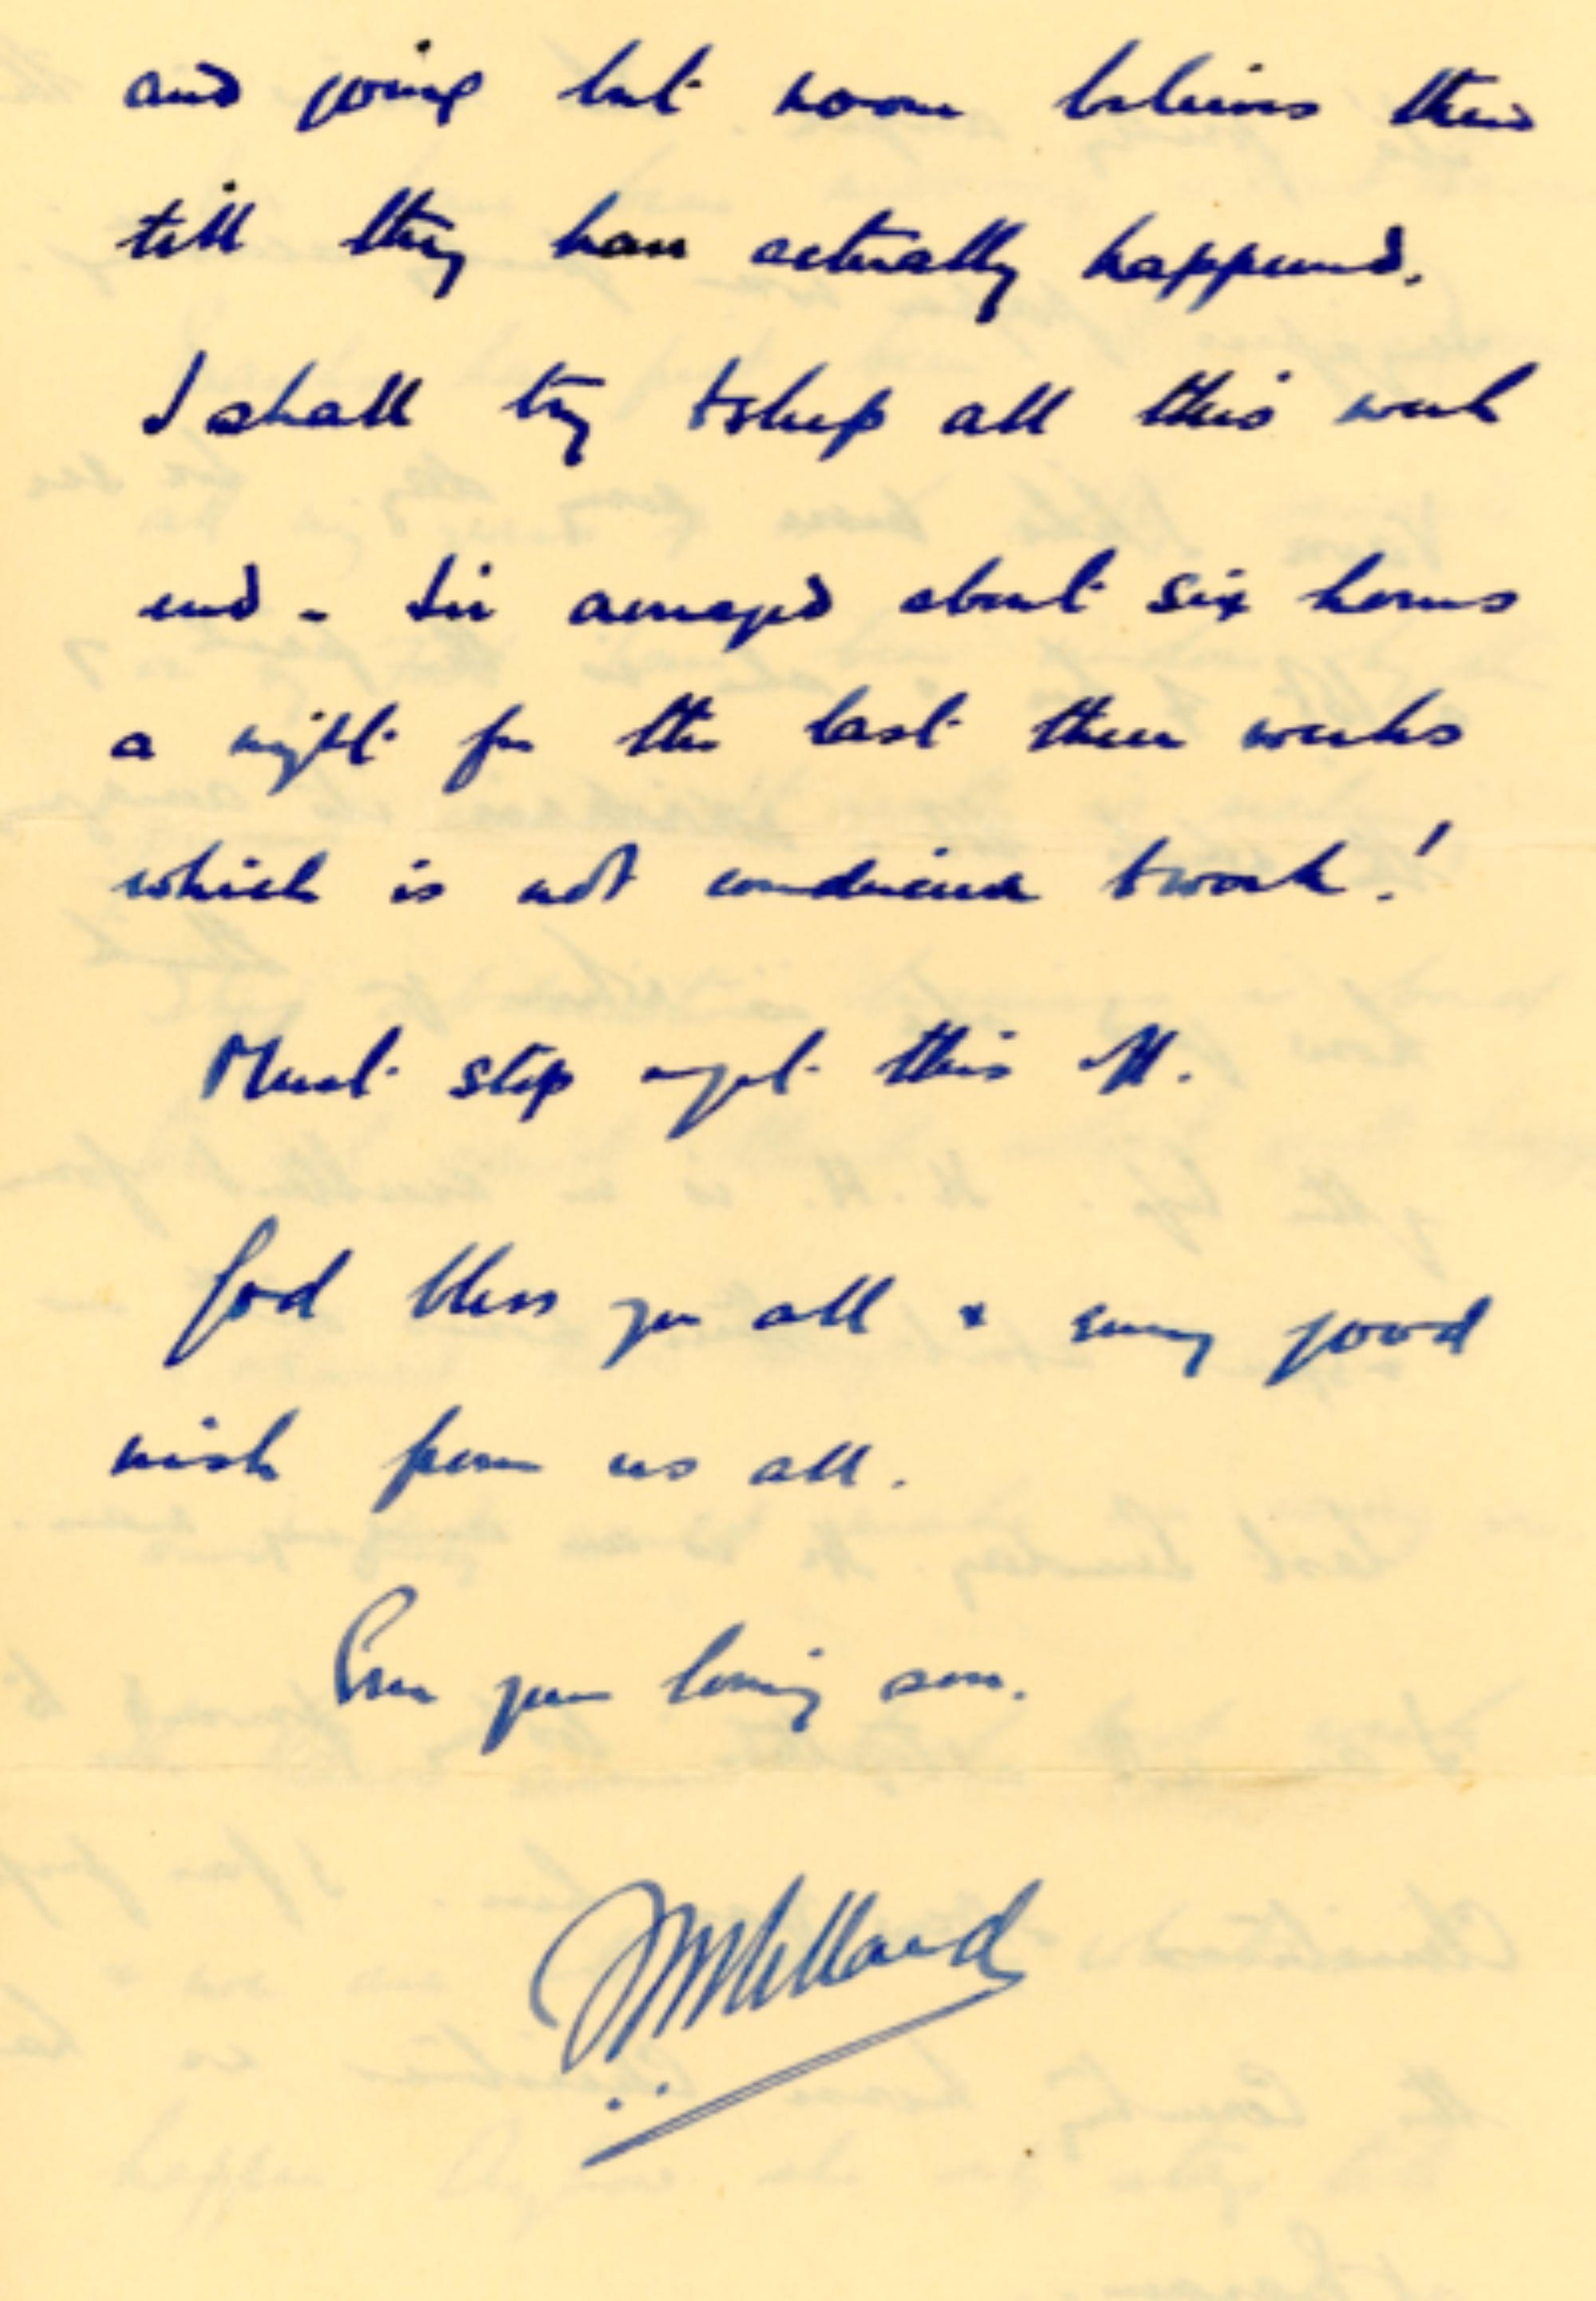 and going but no one believes them
till they have actually happened.
I shall try to sleep all this week
end - I've averaged about six hours
a night for the last three weeks
which is not conducive to work!
Must stop & get this off.
God bless you all & every good
wish from us all.
Ever your loving son.